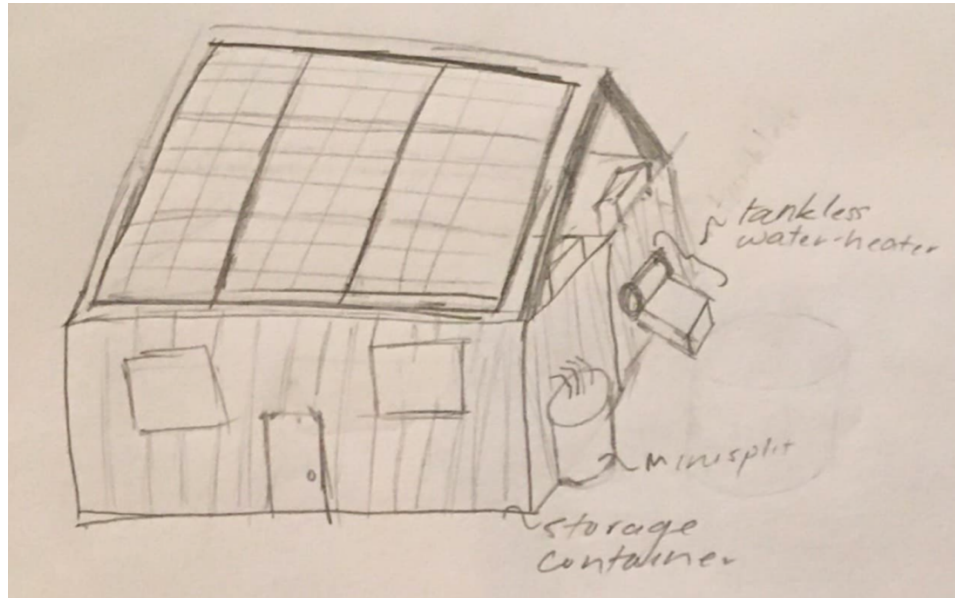 tankless
water-heater
Minisplit
storage
container